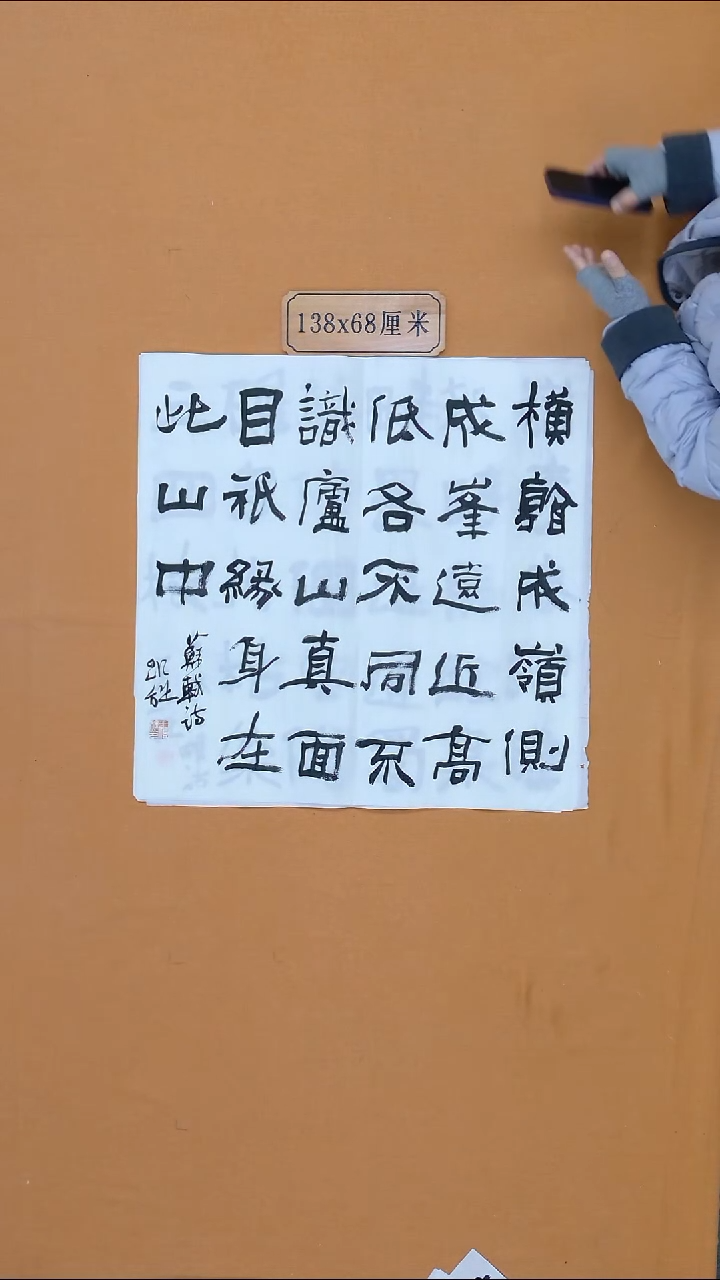 138x68厘米
橫看成嶺側
成峯遠近高
低各不同不
識廬山真面
目祇緣身在
此山中
蘇軾詩